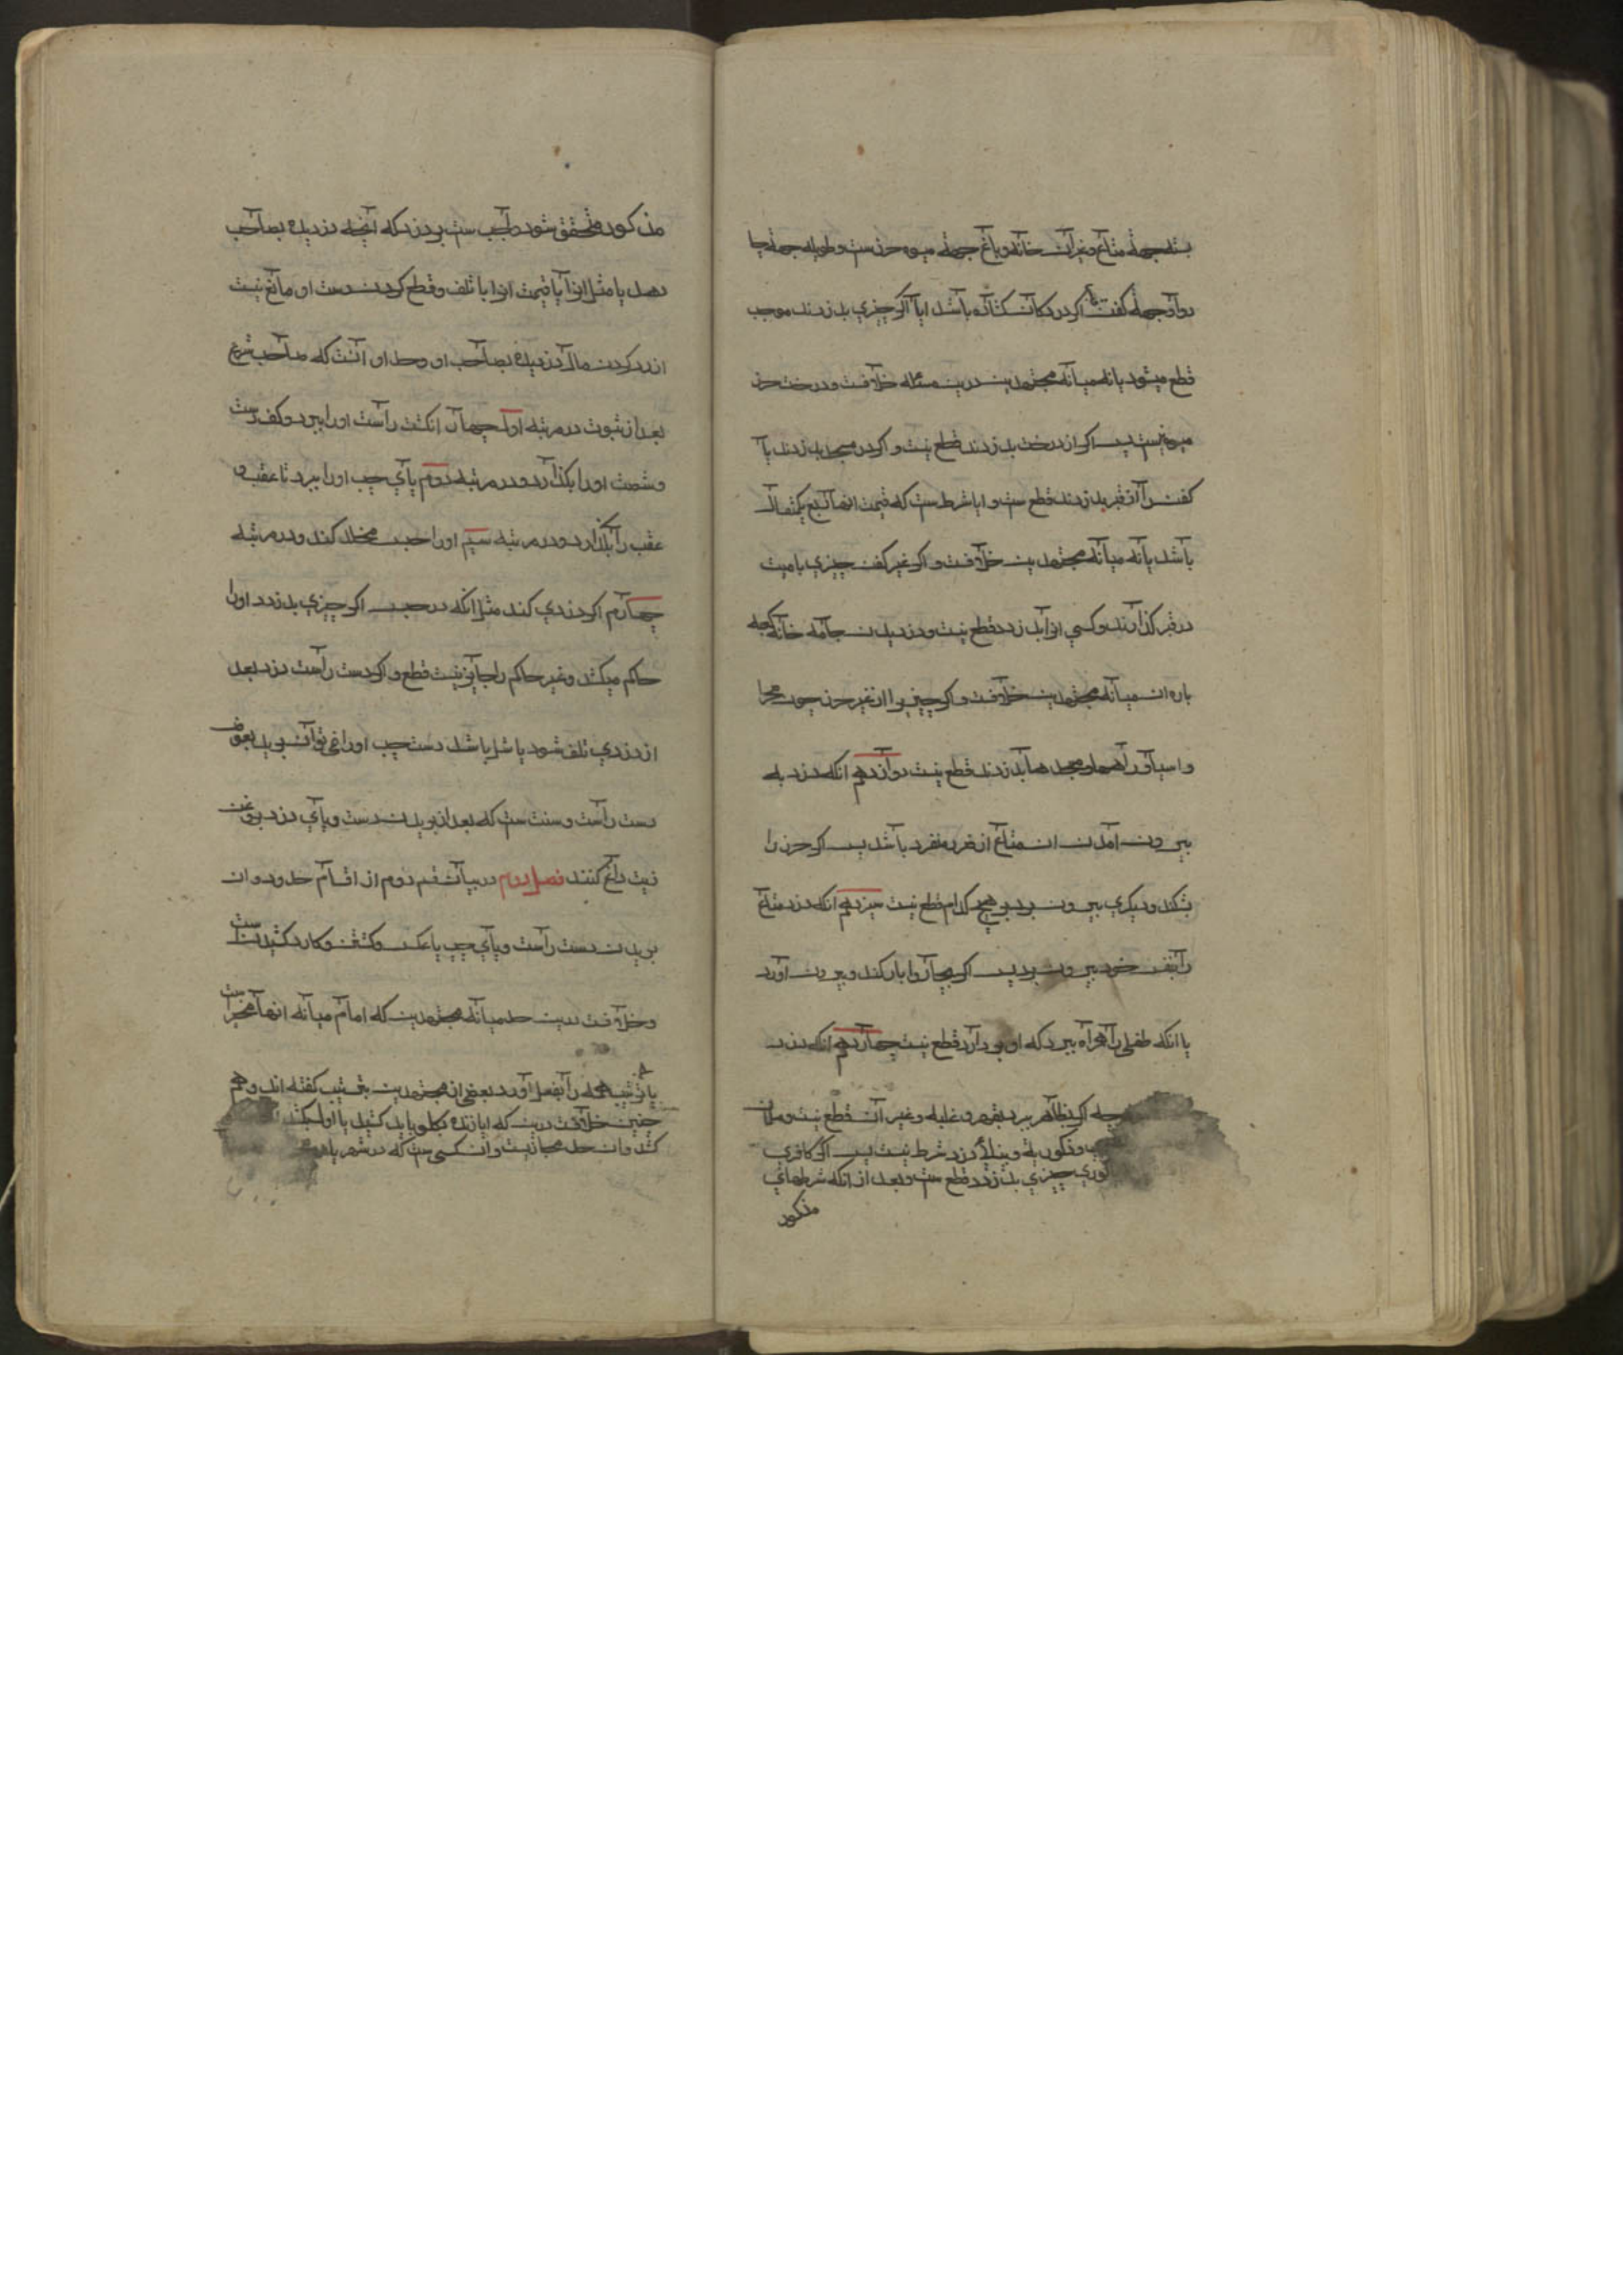 بسته جهة متاع و غیر آن خانه و باغ جهة میوه حرزست و طویله جهة چها
روا و جهة کفن اگر در دکان گشاده باشد ایا اگر چیزی بدزدند موجب
قطع میشود یا نه میانه مجتهدین درین مسئله خلافست و درخت حرز
میوه نیست پس اگر از درخت بدزدند قطع نیست و اگر در مسجد بدزدند یا
کفن را از قبر بدزدند قطع ست و ایا شرط ست که قیمت انها ربع یکمثقال
باشد یا نه میانه مجتهدین خلافست و اگر غیر کفن چیزی با میت
در قبر گذارند و کسی انرا بدزدد قطع نیست و دزدیدن جامه خانه کعبه
باره ان میانه مجتهدین خلافست و اگر چیزیرا از غیر حرز چون صحرا
و اسیا و راهها و مسجدها بدزدند قطع نیست دوازدهم انکه دزد به
بیرون آمدن ان متاع از حرز منفرد باشد پس اگر حرز را
بشکند و دیگری بیرون برد بر هیچکدام قطع نیست سیزدهم انکه دزد متاع
را بنفس خود بیرون برد پس اگر بچاروا بار کند و بیرون آورد
یا انکه طفلی را همراه ببرد که او بردارد قطع نیست چهاردهم انکه دزد
چه اگر بظاهر ببرد بقهر و غلبه و غیر آن قطع نیست و مسلمان
و ذکوریة و بینائی دزد شرط نیست پس اگر کافری
کوری چیزی بدزدد قطع ست و بعد از انکه شرطهای
مذکور
مذکور متحقق شود واجب ست بر دزد که آنچه دزدیده بصاحب
دهد یا مثل انرا یا قیمت انرا با تلف و قطع کردن دست او مانع نیست
از رد کردن مال دزدیده بصاحب او و حد او آنست که صاحب شرع
بعد از ثبوت در مرتبه اول چهار انگشت راست او را ببرد و کف دست
و شصت او را بگذارد و در مرتبه دوم پای چپ او را ببرد تا عقب و
عقب را بگذارد و در مرتبه سیم او را حبس مخلد کند و در مرتبه
چهارم اگر دزدی کند مثل انکه در حبس اگر چیزی بدزدد او را
حاکم میکشد و غیر حاکم را جایز نیست قطع و اگر دست راست دزد بعد
از دزدی تلف شود یا شل باشد دست چپ او را نمی توان برید بعوض
دست راست و سنت ست که بعد از بریدن دست و پای دزد بروغن
زیت داغ کنند فصل دوم در بیان قسم دوم از اقسام حدود و ان
بریدن دست راست و پای چپ یا عکس و کشتن و کار دکشیدن ست
و خلافست درین حد میانه مجتهدین که امام میانه انها مخیر ست
یا بترتیب همه را بفعل آورد بعضی از مجتهدین بترتیب گفته اند و هم
چنین خلافست درین که ایا زنده بگلو باید کشید یا اول بکشند
کشد و ان حد محاربست و ان کسی ست که در شهر یا